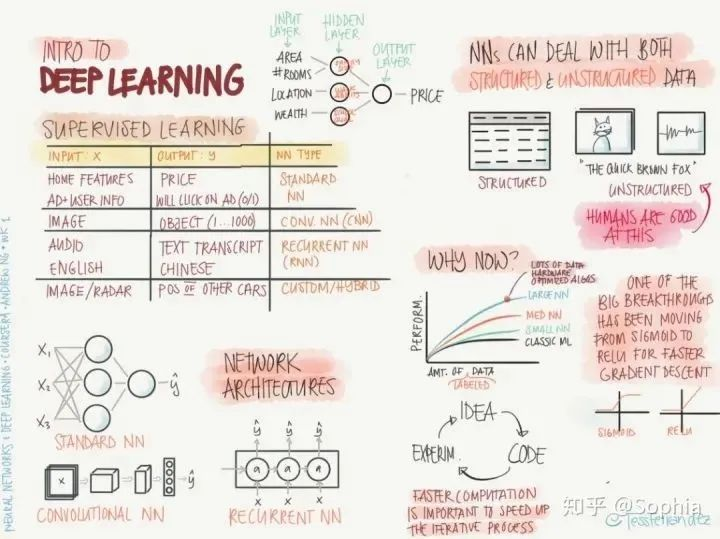 INTRO TO
DEEP LEARNING
INPUT LAYER
HIDDEN LAYER
OUTPUT LAYER
AREA
# ROOMS
LOCATION
WEALTH
PRICE
SUPERVISED LEARNING
INPUT: X OUTPUT: Y NN TYPE
HOME FEATURES PRICE STANDARD
AD+USER INFO WILL CLICK ON AD (0/1) NN
IMAGE OBJECT (1...1000) CONV. NN (CNN)
AUDIO TEXT TRANSCRIPT RECURRENT NN
ENGLISH CHINESE (RNN)
IMAGE/RADAR POS OF OTHER CARS CUSTOM/HYBRID
NNs CAN DEAL WITH BOTH
STRUCTURED & UNSTRUCTURED DATA
STRUCTURED
"THE QUICK BROWN FOX"
UNSTRUCTURED
HUMANS ARE GOOD
AT THIS
WHY NOW?
LOTS OF DATA
HARDWARE
OPTIMIZED ALGOS
LARGE NN
MED NN
SMALL NN
CLASSIC ML
PERFORM.
AMT. OF DATA
LABELED
ONE OF THE
BIG BREAKTHROUGHS
HAS BEEN MOVING
FROM SIGMOID TO
RELU FOR FASTER
GRADIENT DESCENT
SIGMOID RELU
IDEA
EXPERIM. CODE
FASTER COMPUTATION
IS IMPORTANT TO SPEED UP
THE ITERATIVE PROCESS
NETWORK
ARCHITECTURES
X₁
X₂
X₃
ŷ
STANDARD NN
X
ŷ
CONVOLUTIONAL NN
ŷ ŷ ŷ
a a a
X X X
RECURRENT NN
NEURAL NETWORKS & DEEP LEARNING · COURSERA · ANDREW NG · WK 1
知乎 @Sophia